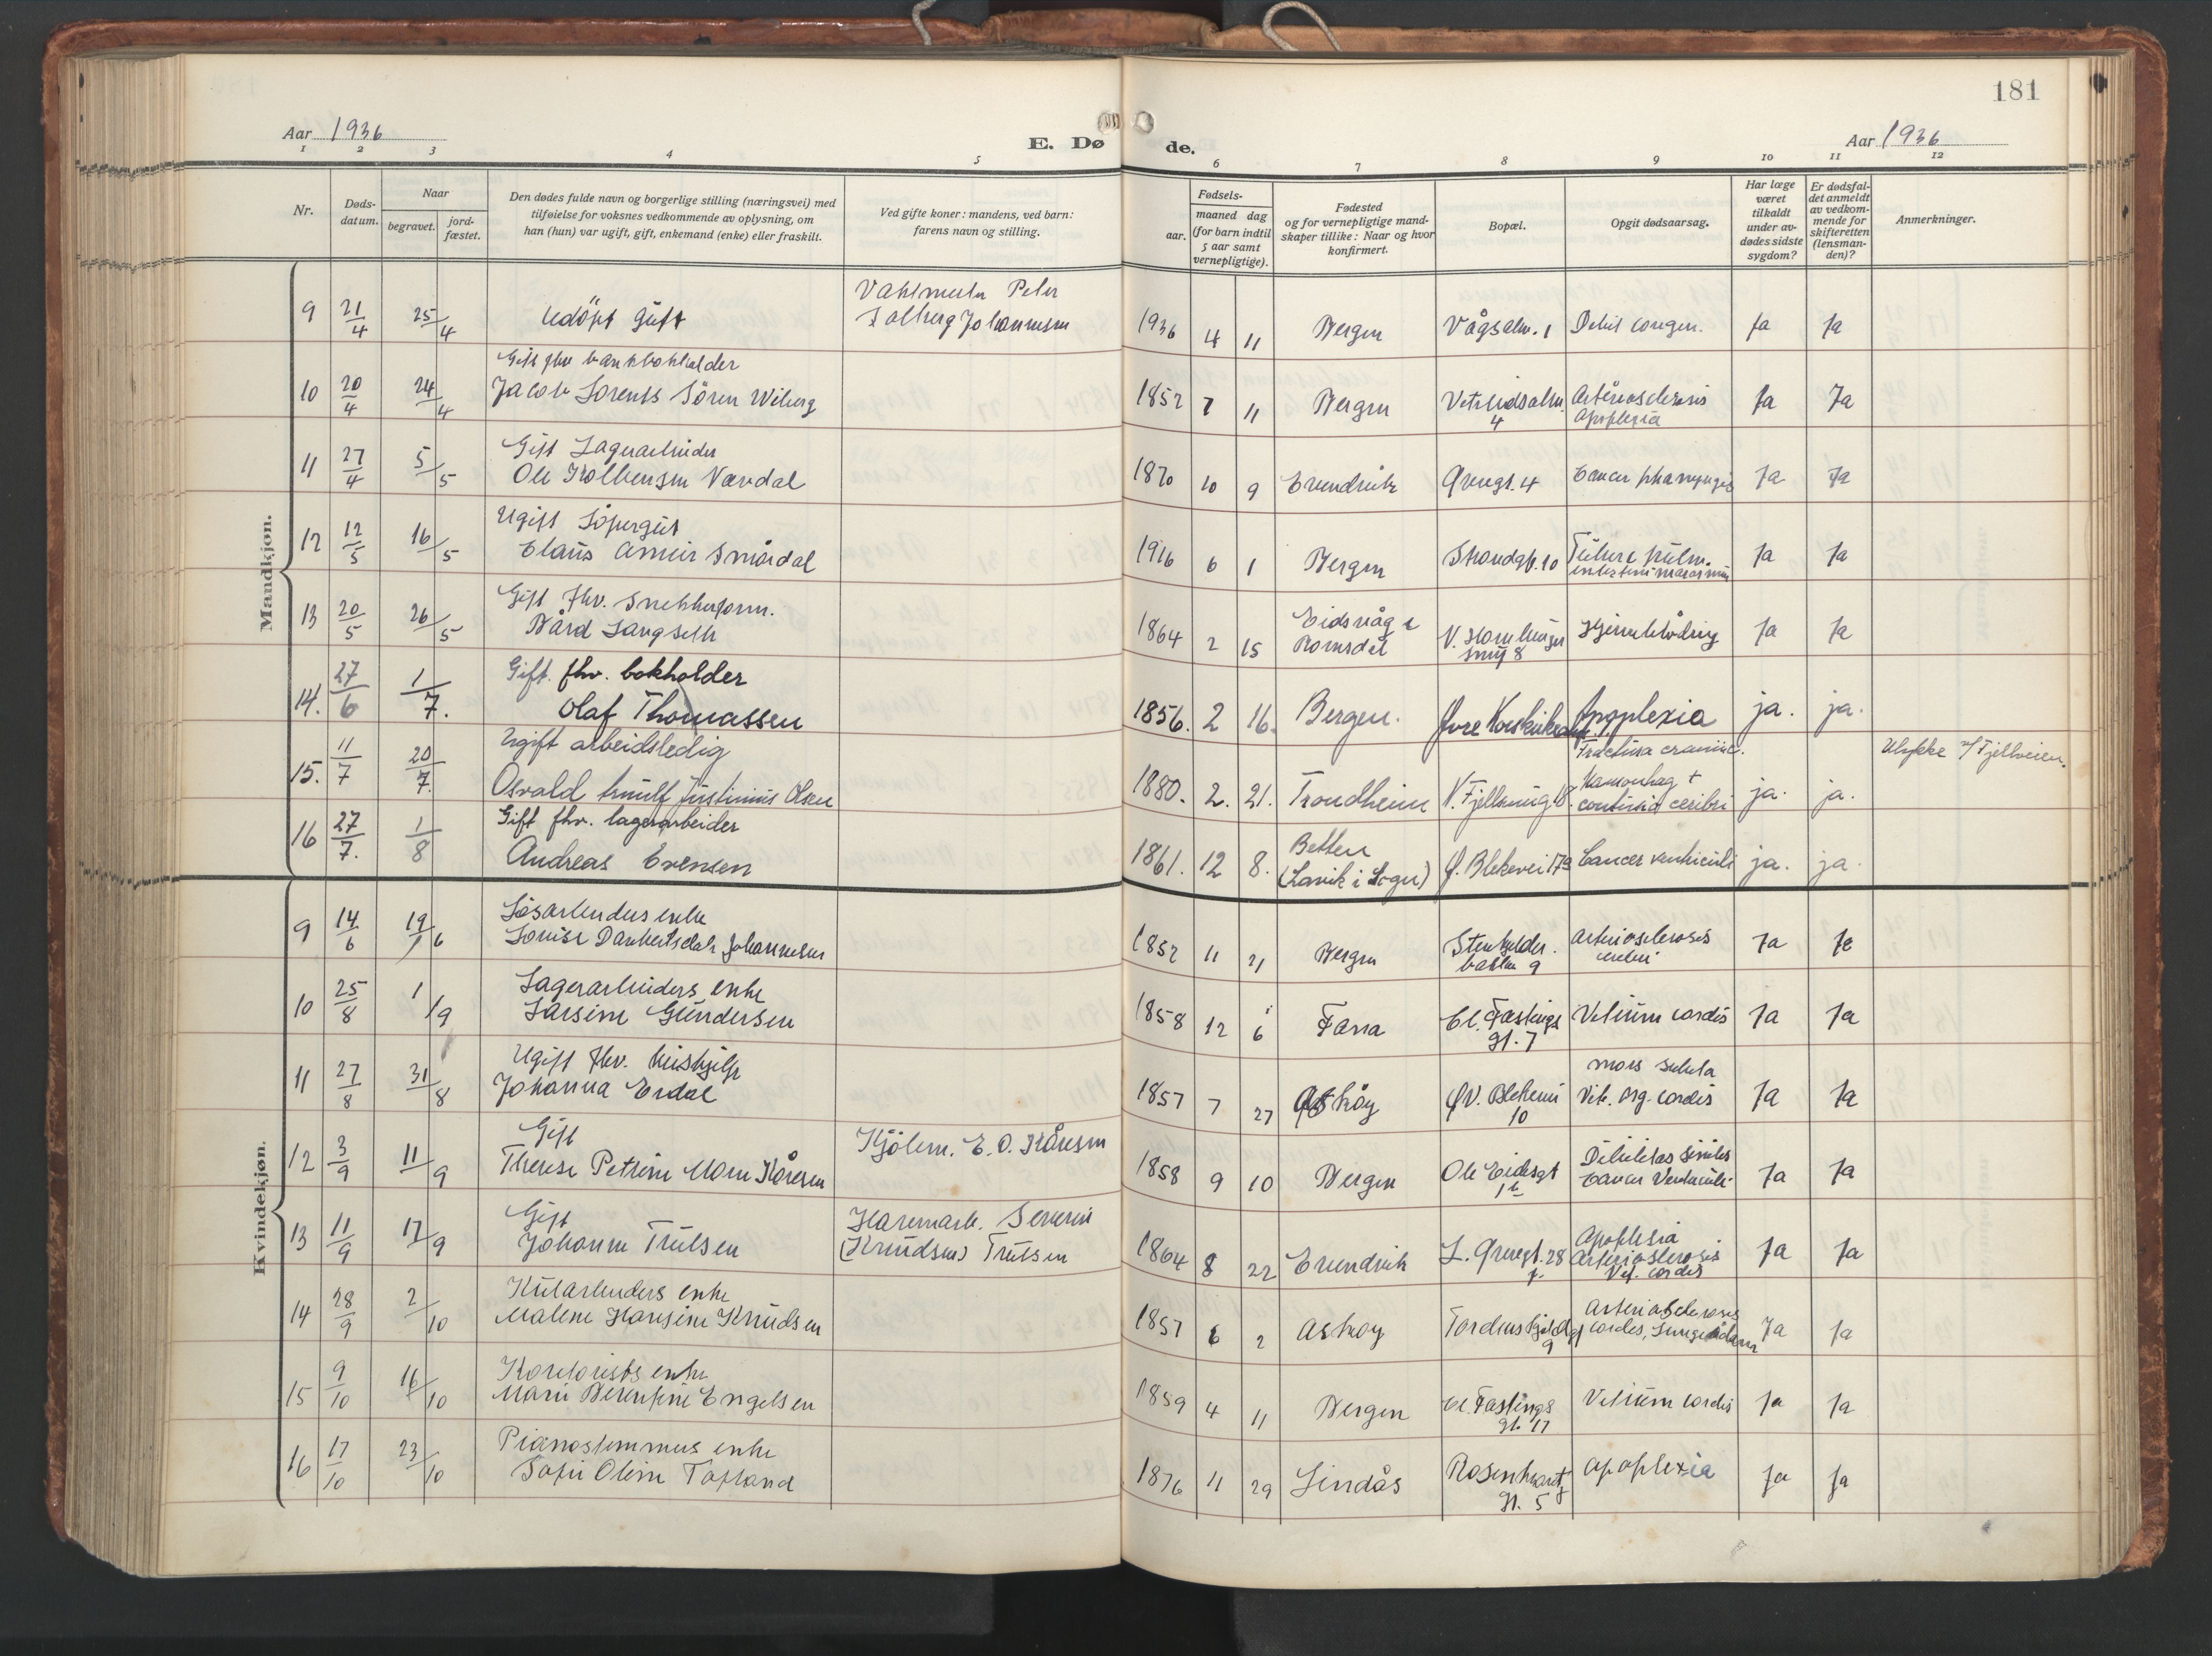 181
Aar 1936
E. Dø
de.
Aar 1936
1 2 3 4 5 6 7 8 9 10 11 12
Nr.
Døds-
datum.
Naar
begravet.
jord-
fæstet.
Den dødes fulde navn og borgerlige stilling (næringsvei) med
tilføielse for voksnes vedkommende av oplysning, om
han (hun) var ugift, gift, enkemand (enke) eller fraskilt.
Ved gifte koner: mandens, ved barn:
farens navn og stilling.
Fødsels-
aar.
maaned dag
(for barn indtil
5 aar samt
vernepligtige).
Fødested
og for vernepligtige mand-
skaper tillike: Naar og hvor
konfirmert.
Bopæl.
Opgit dødsaarsag.
Har læge
været
tilkaldt
under av-
dødes sidste
sygdom?
Er dødsfal-
det anmeldt
av vedkom-
mende for
skifteretten
(lensman-
den)?
Anmerkninger.
Mandkjøn.
9 21/4 25/4 Udöpt gutt
Peter
Solberg Johannesen
1936 4 11 Bergen Vågsalm. 1 Debil congen. Ja Ja
Gift fhv bankbokholder
10 20/4 24/4 Jacob Lorents Sören Wiberg
1852 7 11 Bergen Vetrlidsalm.
4
Arteriosclerosis
Apoplexia
Ja Ja
Gift Lagerarbeider
11 27/4 5/5 Ole Kolbensen Nævdal
1870 10 9 Evendvik 4 Cancer pharyngis Ja Ja
Ugift Löpergut
12 12/5 16/5 Claus Smördal
1916 6 1 Bergen Strandgt. 10 Ja Ja
Gift fhv. Snekkerform.
13 20/5 26/5 Bård Langseth
1864 2 15 Eidsvåg i
Romsdal
8
Hjerneblödning
Ja Ja
Gift. fhv. bokholder
14. 27/6 1/7. Olaf Thomassen
1856. 2 16. Bergen. Apoplexia ja. ja.
Ugift arbeidsledig
15. 11/7 20/7. Osvald Justinius Olsen
1880. 2. 21. Trondheim V. Fjellsmug 18.
Fractura cranii
contusio cerebri
ja. ja.
Ulykke i Fjellveien.
Gift fhv. lagerarbeider
16 27/7. 1/8 Andreas Evensen
1861. 12 8. Betten
(Lavik i Sogn)
Ø. Blekevei 17a Cancer ventriculi ja. ja.
Kvindekjøn.
Løsarbeiders enke
9 14/6 19/6 Louise Danhertsdatr Johannesen
1852 11 21 Bergen
9
Arteriosclerosis
cerebri
Ja Ja
Lagerarbeiders enke
10 25/8 1/9 Larsine Gundersen
1858 12 6 Fana Cl. Fastings
gt. 7
Vitium cordis Ja Ja
Ugift fhv. hushjelp
11 27/8 31/8 Johanna Erdal
1857 7 27 Askøy
10
mors subita
Vit. org. cordis
Ja Ja
Gift
12 3/9 11/9 Therese Petrine Marie Kåresen
Kjölem. E. O. Kåresen
1858 9 10 Bergen Ole Eidesgt
Debilitas senilis
Cancer Ventriculi
Ja Ja
Gift
13 11/9 17/9 Johanne Trulsen
Severin
(Knudsen) Trulsen
1864 8 22 Evendvik 28
Apoplexia
Arteriosclerosis
Vit. cordis
Ja Ja
Kularbeiders enke
14 28/9 2/10 Malene Hansine Knudsen
1857 6 2 Askoy Tordenskjoldsgt
9
Arteriosclerosis
cordis, Lungeödem
Ja Ja
enke
15 9/10 16/10 Marie Berentine Engelsen
1859 4 11 Bergen Cl. Fastings
gt. 17
Vitium cordis Ja Ja
Pianostemmers enke
16 17/10 23/10 Sofie Oline Tofland
1876 11 29 Lindås Rosenkrantz
gt. 5
apoplexia Ja Ja